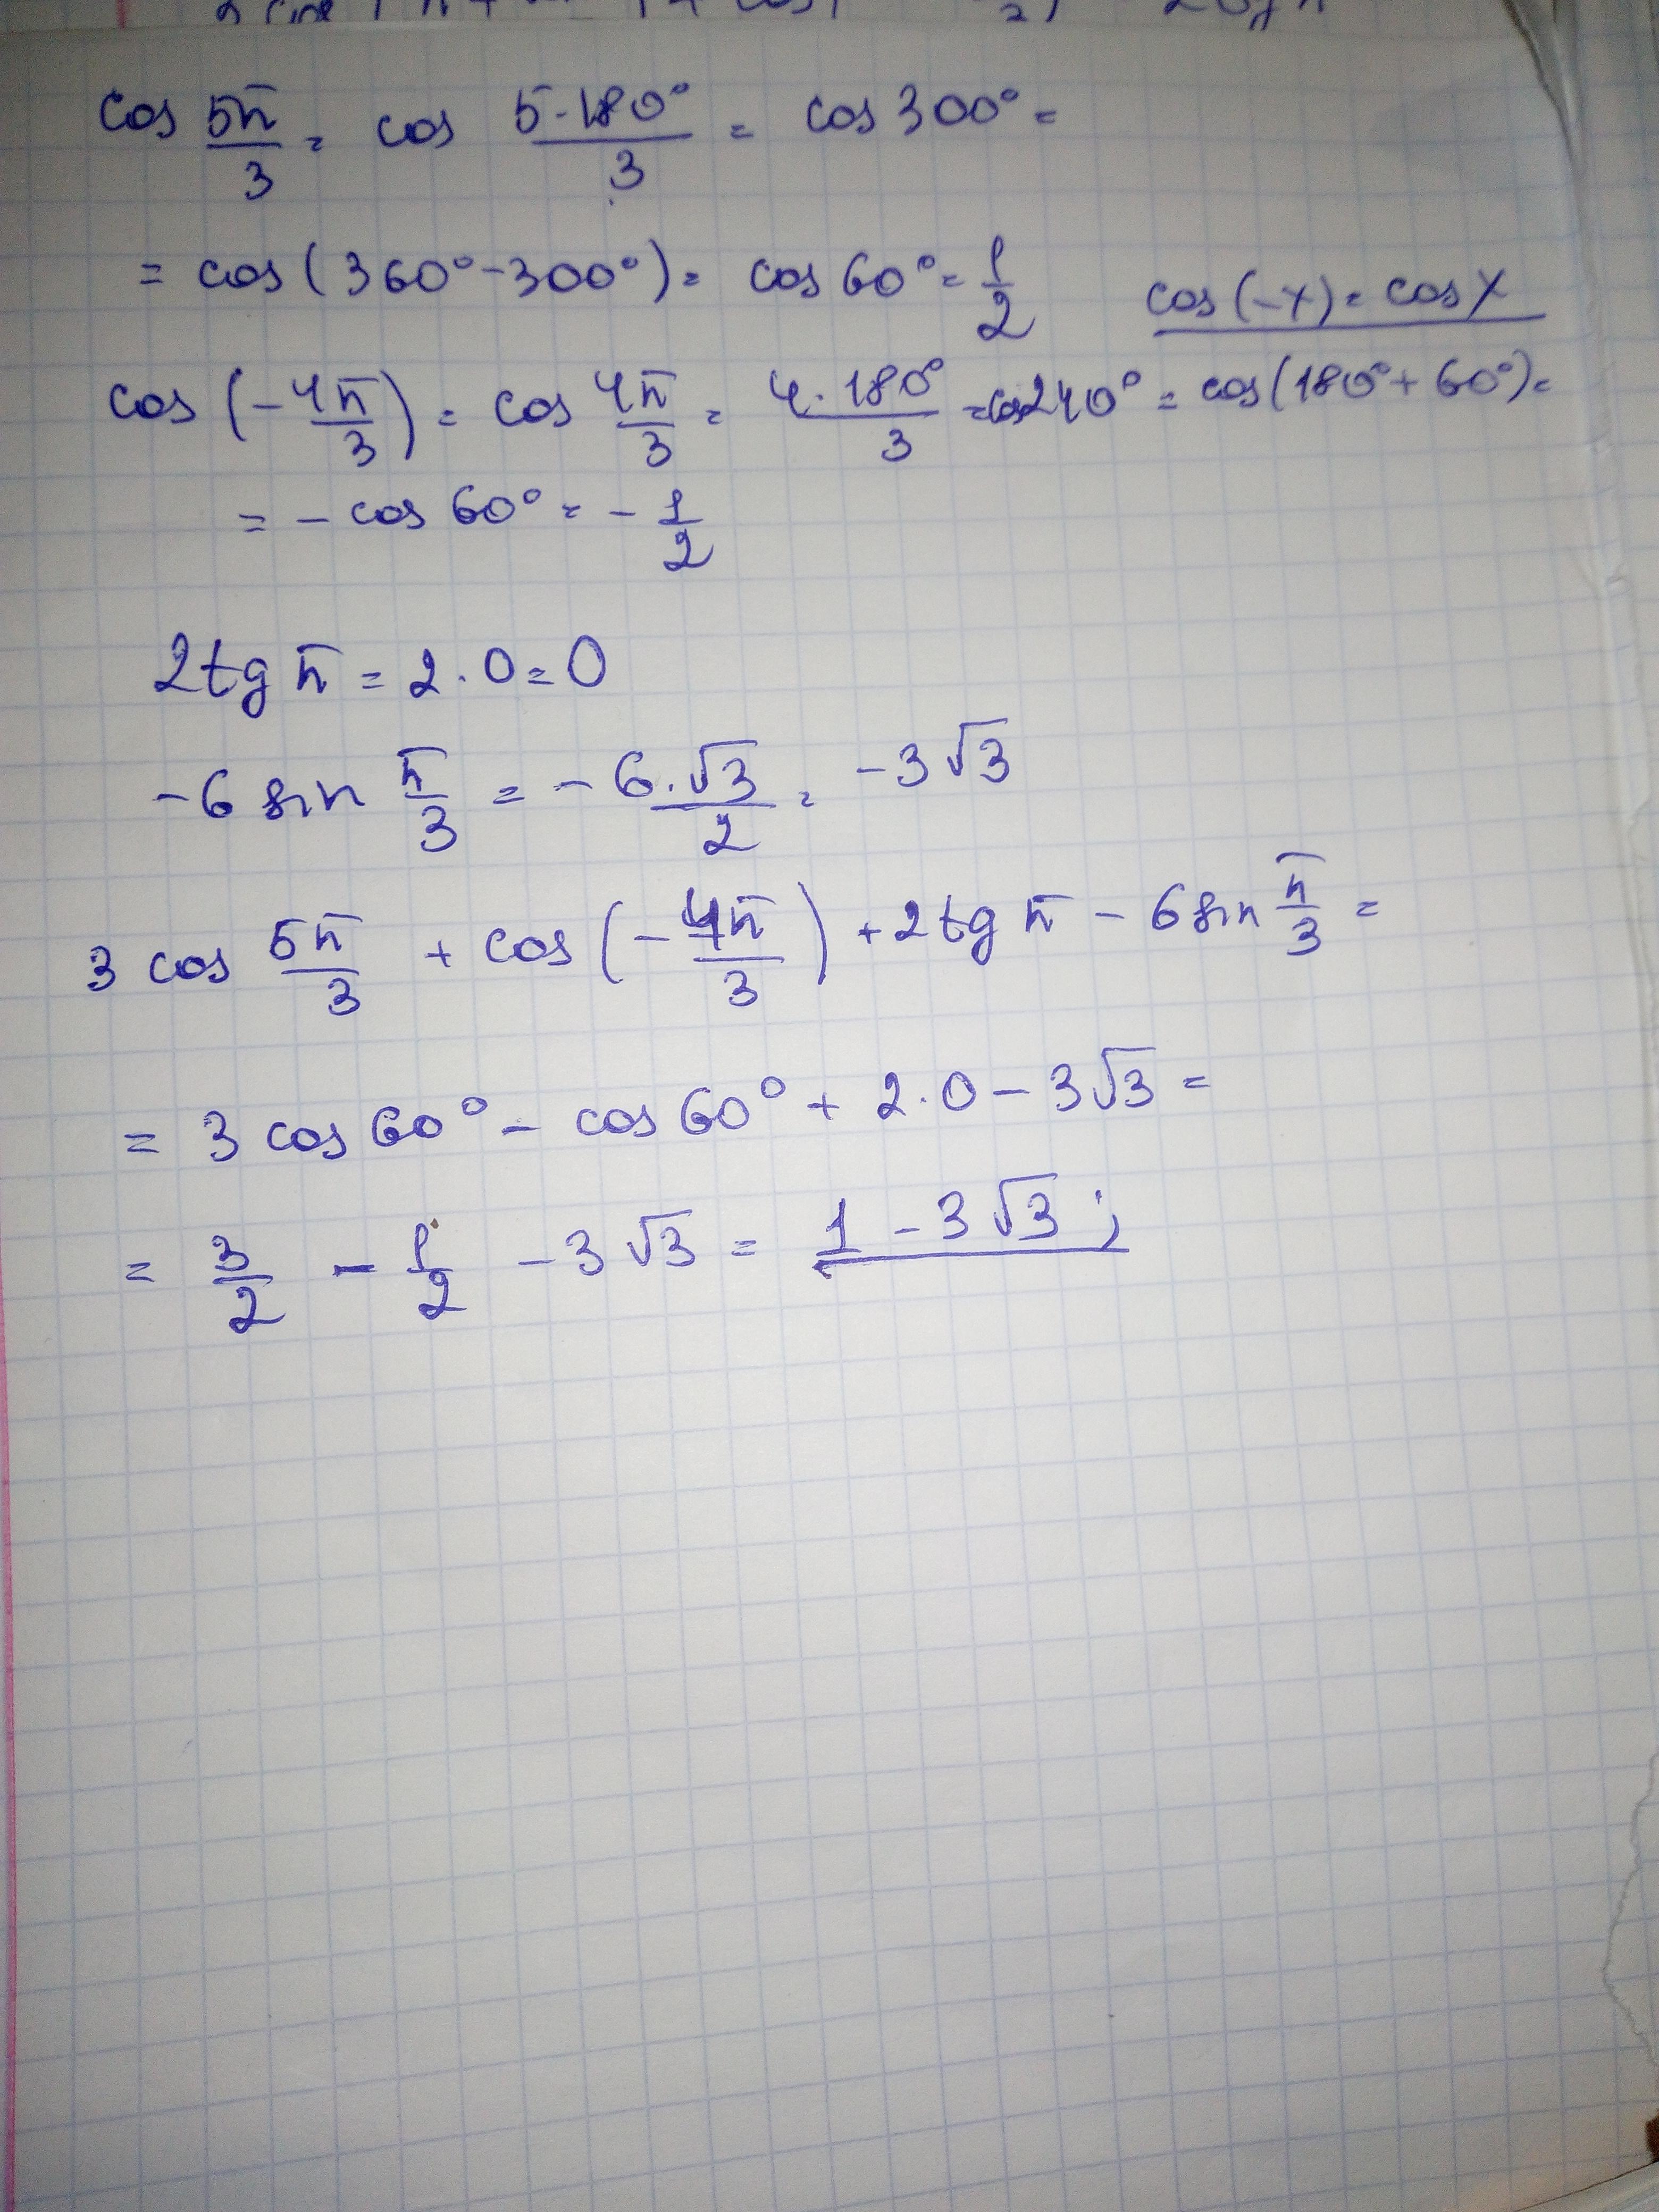 cos 5π/3 = cos 5·180°/3 = cos 300° =
= cos(360°-300°) = cos 60° = 1/2
cos(-x) = cos x
cos (-4π/3) = cos 4π/3 = 4·180°/3 = cos240° = cos(180°+60°) =
= - cos 60° = - 1/2
2tg π = 2·0 = 0
-6 sin π/3 = - 6·√3/2 = -3√3
3 cos 5π/3 + cos (-4π/3) + 2tg π - 6sin π/3 =
= 3 cos 60° - cos 60° + 2·0 - 3√3 =
= 3/2 - 1/2 - 3√3 = 1 - 3√3;